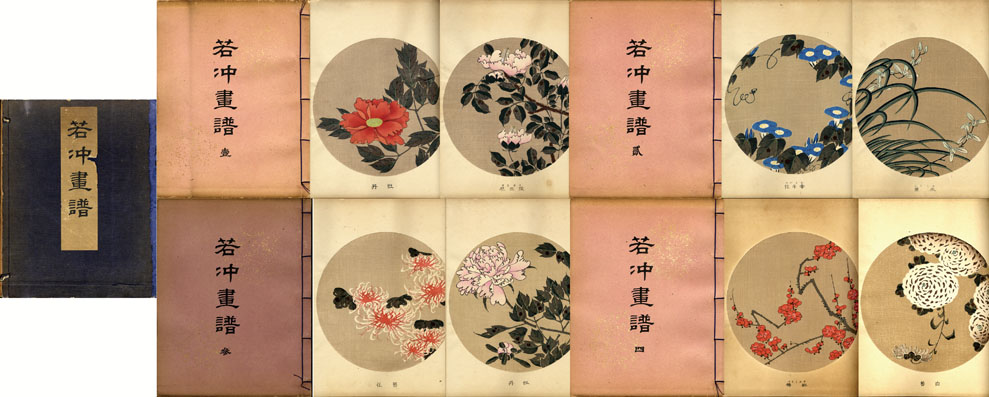 若冲畫譜
若冲畫譜
壹
牡丹
若冲畫譜
貳
牽牛花
若冲畫譜
參
牡丹
若冲畫譜
四
白菊